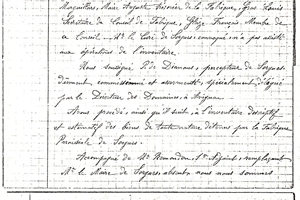 Marguilliers, Maire Auguste Trésorier de la Fabrique, Gras Louis
Secrétaire du Conseil de Fabrique, François, Membre du
Conseil. Mr le Curé de Sorgues convoqué n'a pas assisté aux
opérations de l'inventaire.
Nous soussigné P. de Damians, percepteur de Sorgues,
dûment commissionné et assermenté, spécialement délégué
par le Directeur des Domaines, à Avignon
Avons procédé, ainsi qu'il suit, à l'inventaire descriptif
et estimatif des biens de toute nature détenus par la Fabrique
Paroissiale de Sorgues.
Accompagné de Mr 1er Adjoint, remplaçant
Mr le Maire de Sorgues, absent, nous nous sommes